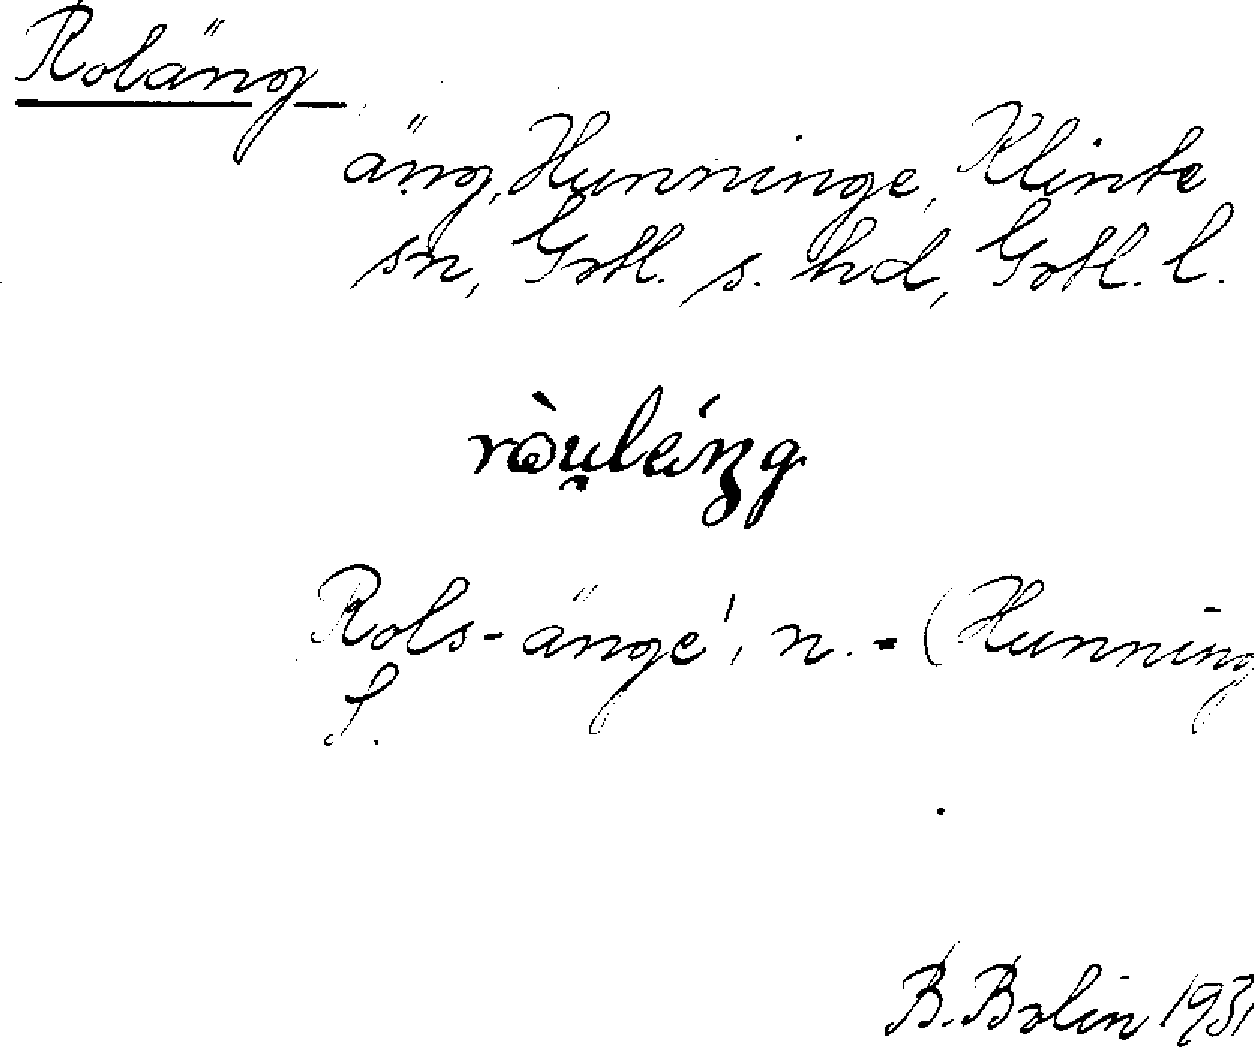 Roläng
äng, Hunninge, Klinte
sn, Gotl. s. hd, Gotl. l.
ròu̯läŋg
Rols-änge', n. - (Hunning
S.
B. Bolin 1931